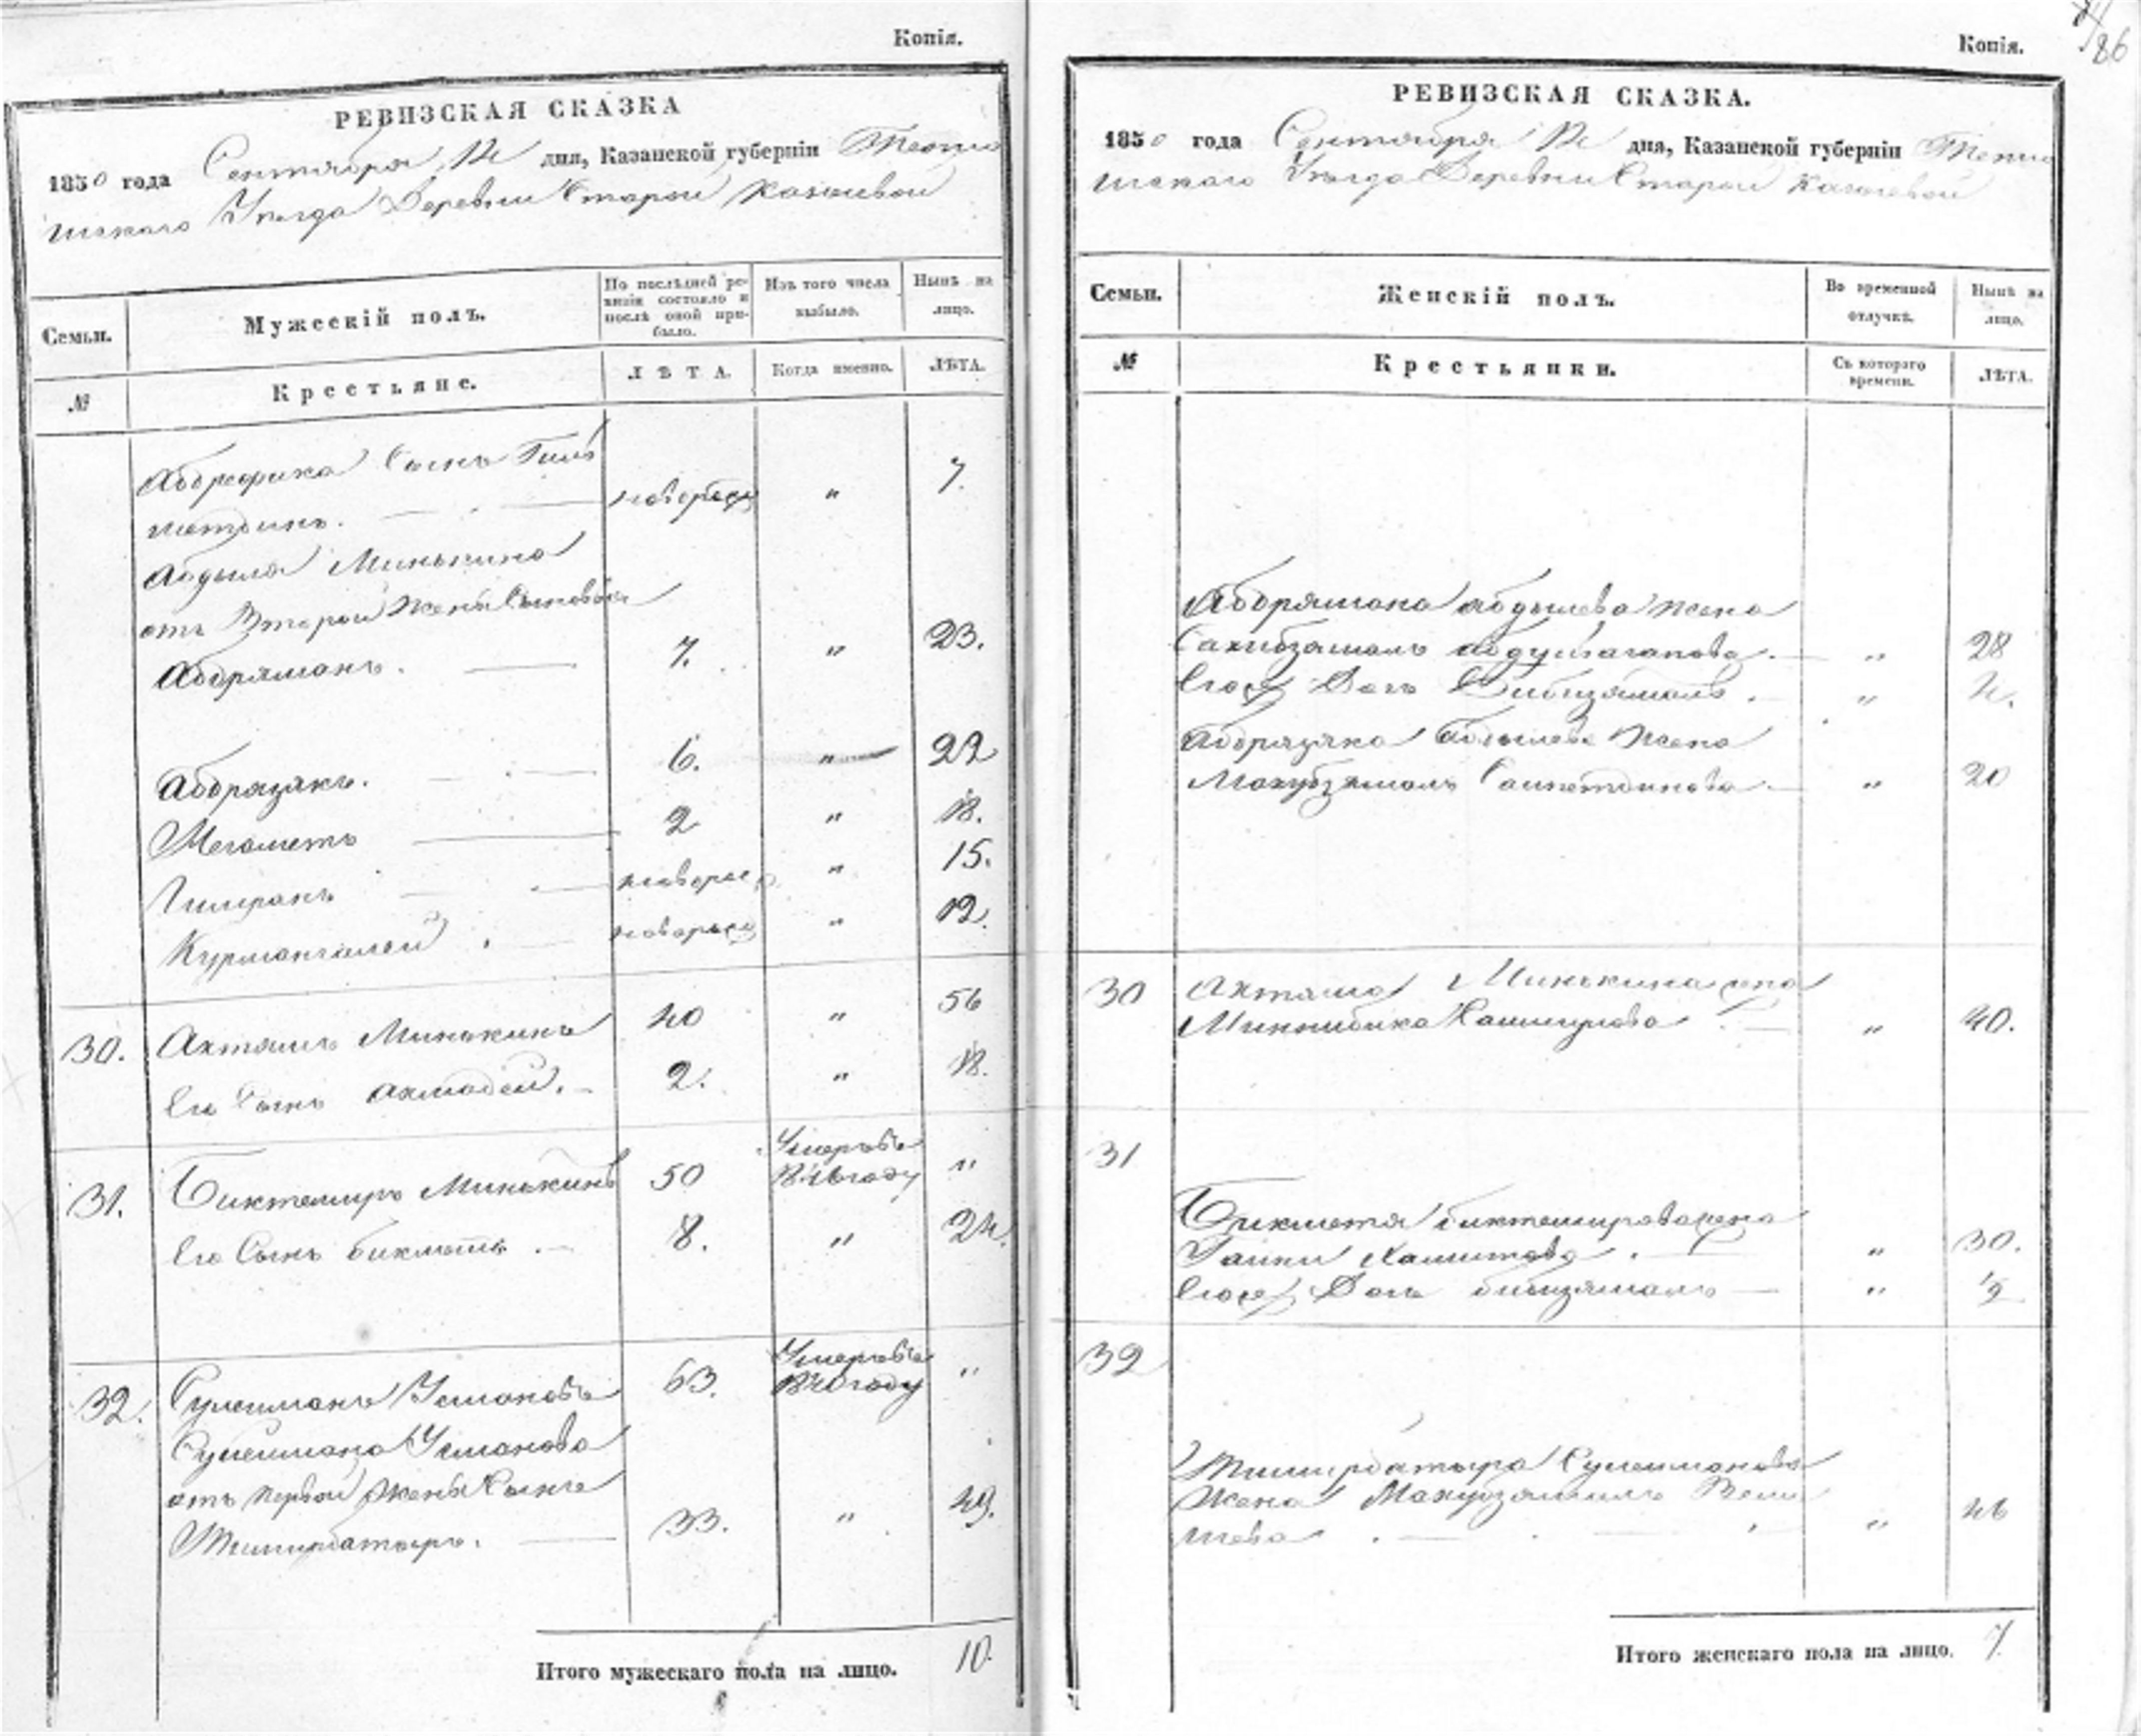 Копія.
РЕВИЗСКАЯ СКАЗКА
1850 года Сентября дня, Казанской губерніи Тетю
шскаго Уезда Деревни Старой
Семьи.
Мужескій полъ.
По послѣдней ре-
визіи состояло и
послѣ оной при-
было.
Изъ того числа
выбыло.
Нынѣ на
лицо.
№
Крестьяне.
ЛѢТА.
Когда именно.
ЛѢТА.
Абдрефика Сынъ Гиля
метдинъ. новорож " 7.
Абдыла Минькина
отъ Второй жены Сыновья
Абдряманъ. 7. " 23.
Абдрязякъ. 6. " 22
Мегаметъ 2 " 18.
новорож " 15.
Курмангалей новорож " 12.
30. Актямъ Минькинъ 40 " 56
Его Сынъ Ахмадей. 2. " 18.
31. Биктемиръ Минькинъ 50 Умеръ въ году "
Его Сынъ бикметь 8. " 24.
32. Сулейманъ Усмановъ 63. Умеръ въ 1840 году "
Сулеймана Усманова
отъ первой жены Сынъ
Тимирбатыръ. 33. " 49.
Итого мужескаго пола на лицо. 10.
86
Копія.
РЕВИЗСКАЯ СКАЗКА.
1850 года Сентября дня, Казанской губерніи Тетю
шскаго Уезда Деревни Старой
Семьи.
Женскій полъ.
Во временной
отлучкѣ.
Нынѣ на
лицо.
№
Крестьянки.
Съ котораго
времени.
ЛѢТА.
Абдрямана абдылева жена
Сахибзямалъ " 28
Его Дочь Бибизямалъ. " 4.
Абдрязяка Абдылева жена
Махубзямалъ Саипетдинова " 20
30 Актяма Минькина жена
Миннибика " 40.
31
Бикметя биктемирова жена
Хамитова. " 30.
Его Дочь бибизямалъ " ½
32
Тимирбатыра Сулейманова
Жена
" 46
Итого женскаго пола на лицо. 7.